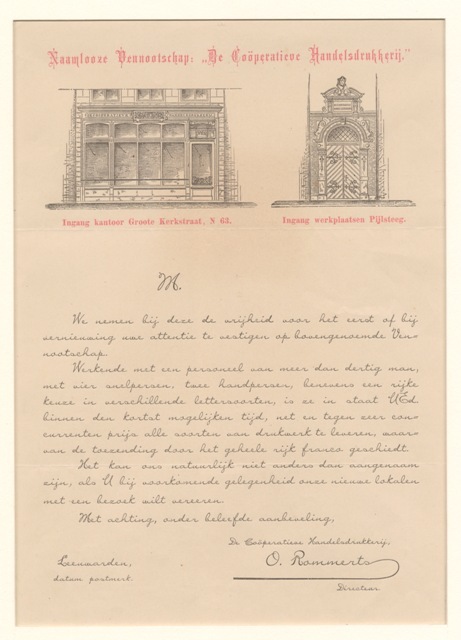 Naamlooze Vennootschap: „De Coöperatieve Handelsdrukkerij,"
Ingang kantoor Groote Kerkstraat, N 63.
Ingang werkplaatsen Pijlsteeg.
M.
We nemen bij deze de vrijheid voor het eerst of bij
vernieuwing uwe attentie te vestigen op bovengenoemde Ven-
nootschap.
Werkende met een personeel van meer dan dertig man,
met vier snelpersen, twee handpersen, benevens een rijke
keuze in verschillende lettersoorten, is ze in staat UEd.
binnen den kortst mogelijken tijd, net en tegen zeer con-
currenten prijs alle soorten van drukwerk te leveren, waar-
van de toezending door het geheele rijk franco geschiedt.
Het kan ons natuurlijk niet anders dan aangenaam
zijn, als U bij voorkomende gelegenheid onze nieuwe lokalen
met een bezoek wilt vereeren.
Met achting, onder beleefde aanbeveling,
De Coöperatieve Handelsdrukkerij,
Leeuwarden,
datum postmerk.
O. Rommerts
Directeur.